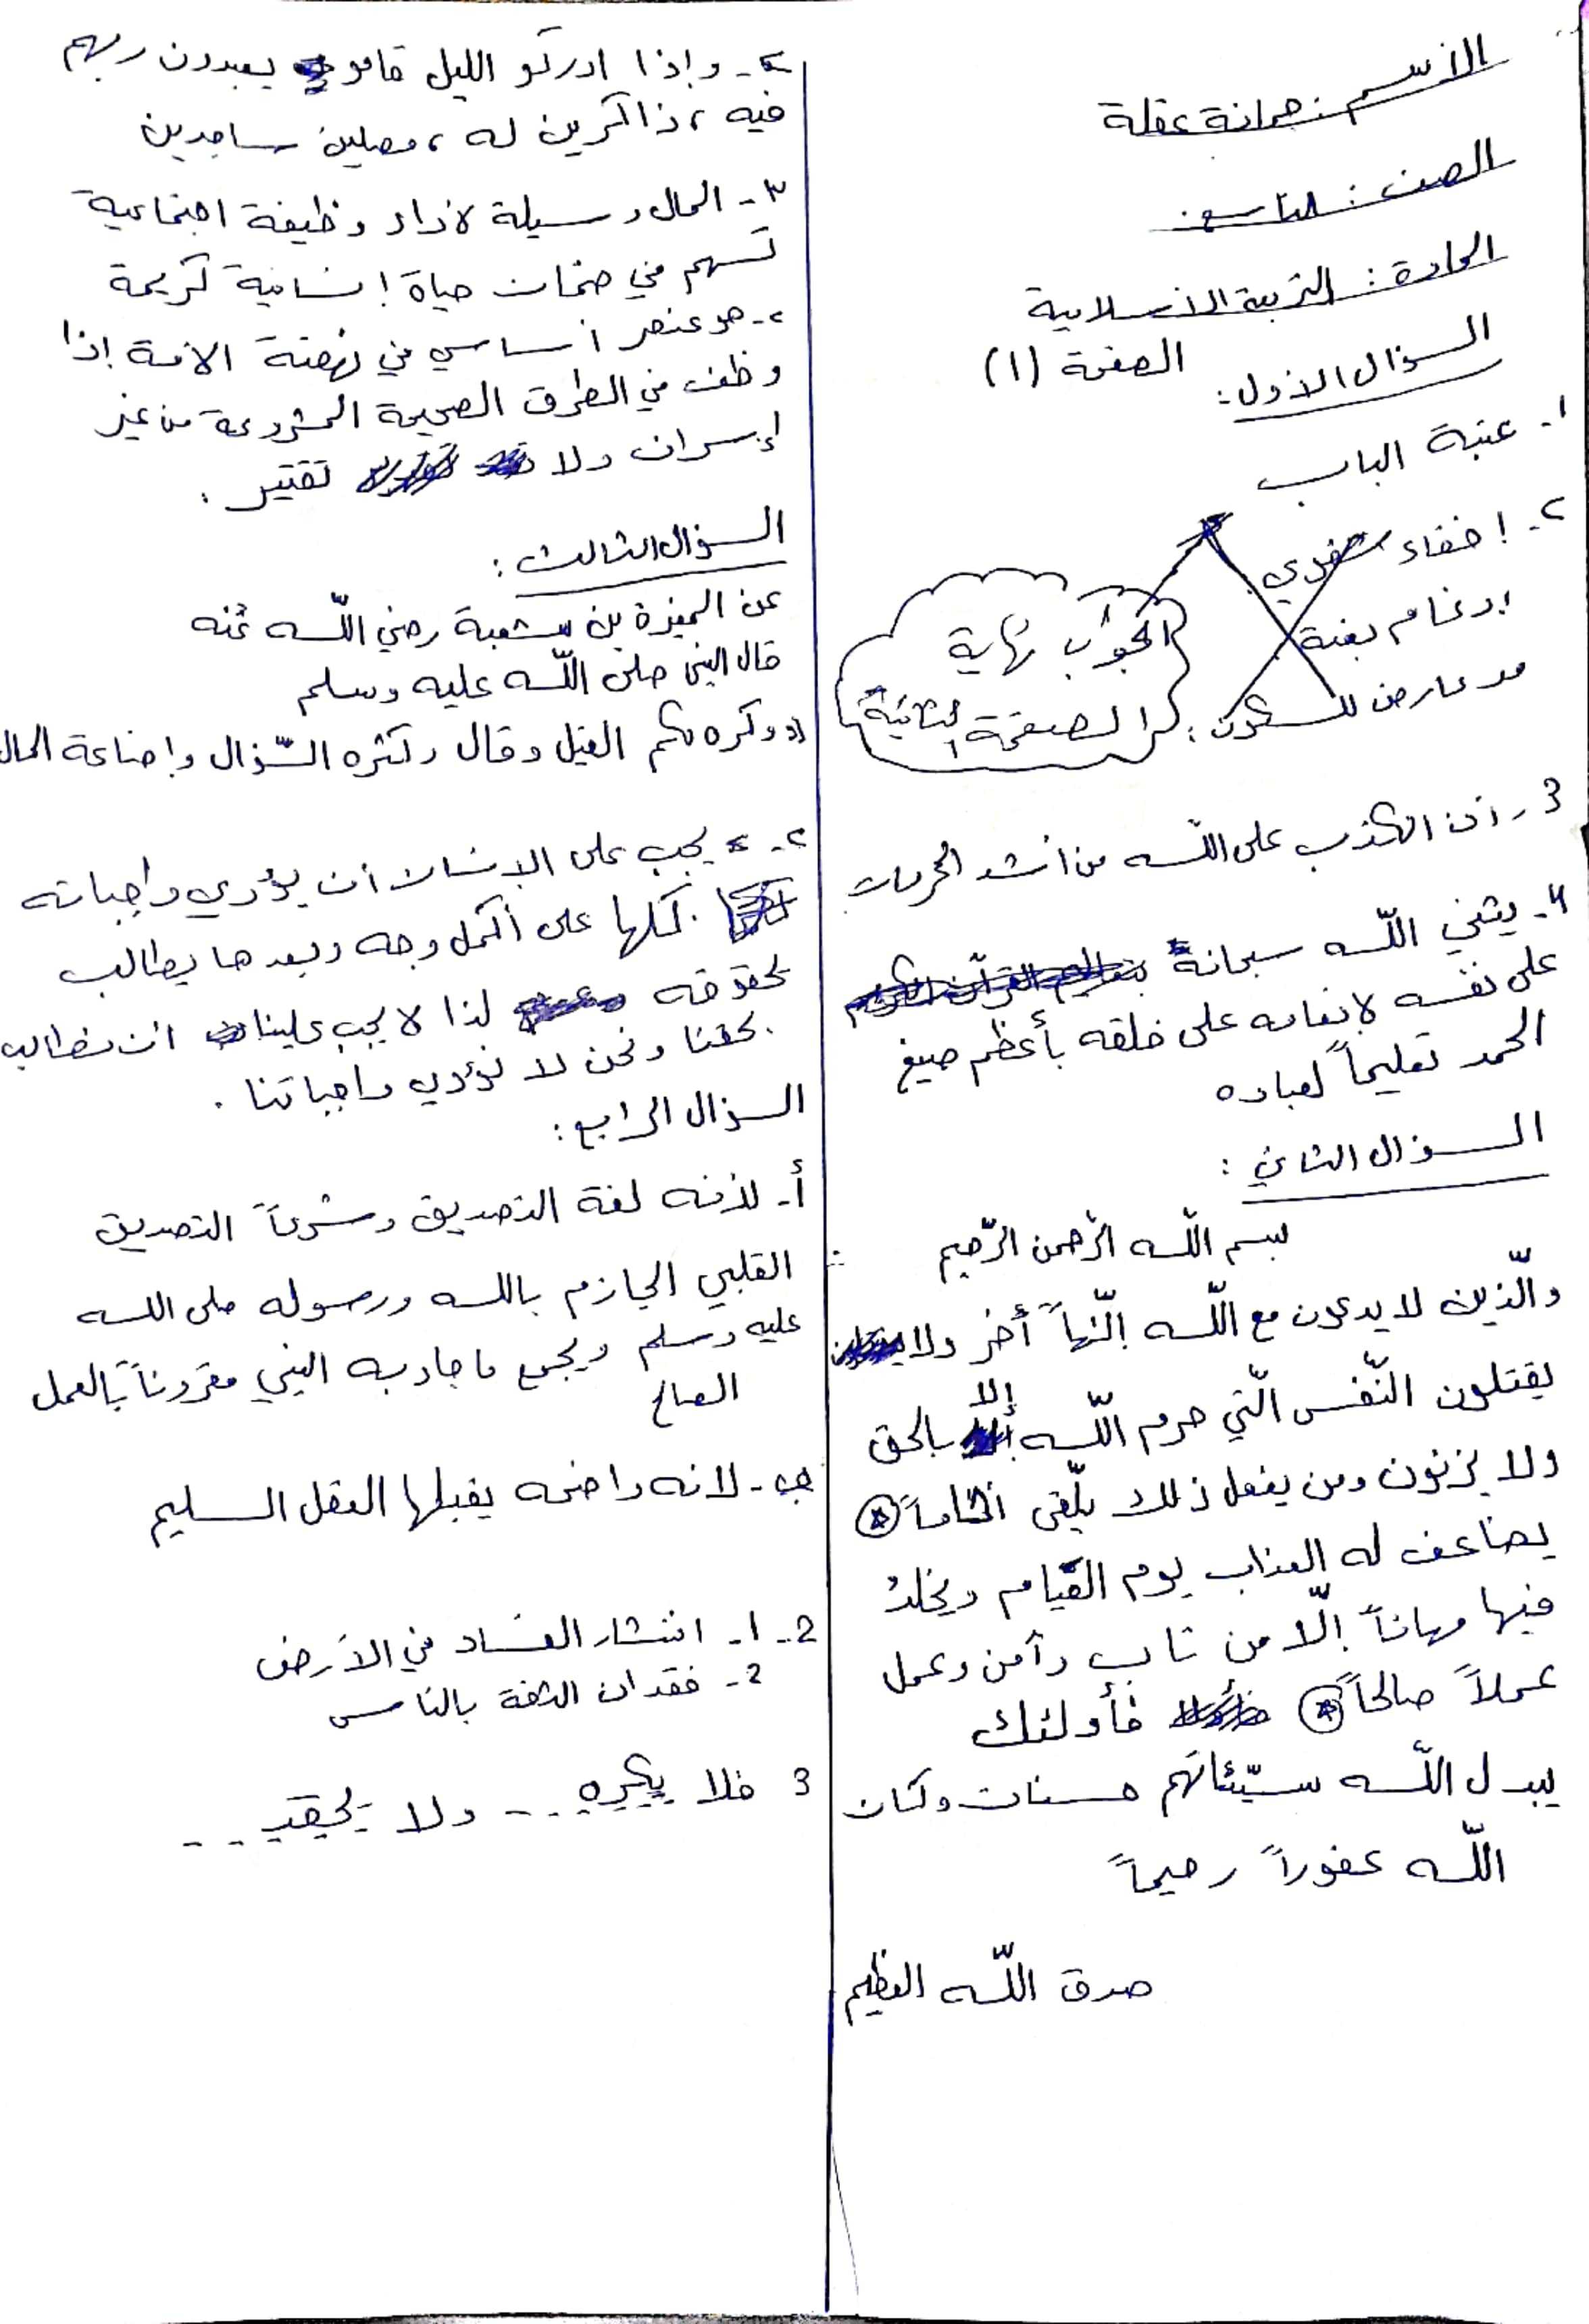 الاسم: جمانة عقلة
الصف: التاسع
المادة: التربية الاسلامية
الصفحة (١)
السؤال الاول:
١- عتبة الباب
٢- إخفاء شفوي
إدغام بغنة
مد عارض للسكون
الجواب نهاية
الصفحة الثانية
3- أن الكذب على الله من أشد المحرمات
٤- يثني الله سبحانه
على نفسه لإنعامه على خلقه بأعظم صيغ
الحمد تعليماً لعباده
السؤال الثاني:
بسم الله الرّحمن الرّحيم
والّذين لا يدعون مع اللّه إلٰهاً أخر ولا
يقتلون النّفس الّتي حرم اللّه إلا بالحق
ولا يزنون ومن يفعل ذلك يلّقى اثاماً
يضاعف له العذاب يوم القيام ويخلدُ
فيها مهاناً إلّا من تاب وآمن وعمل
عملاً صالحاً فأولئك
يبدل اللّه سيّئاتهم حسنات وكان
اللّه غفوراً رحيماً
صدق اللّه العظيم
٢- وإذا ادركو الليل قامو يعبدون ربهم
فيه، ذاكرين له، مصلين ساجدين
٣- المال وسيلة لأداء وظيفة اجتماعية
تسهم في ضمان حياة إنسانية كريمة
٢- هو عنصر أساسي في نهضة الأمة إذا
وظف في الطرق الصحيحة المشروعة من غير
إسراف ولا تقتير.
السؤال الثالث:
عن المغيرة بن شعبة رضي اللّه عنه
قال النبي صلى اللّه عليه وسلم
((وكره لكم القيل وقال وكثره السّؤال وإضاعة المال
٢- يجب على الإنسان أن يؤدي واجباته
كلها على أكمل وجه وبعدها يطالب
بحقوقه لذا لا يجب علينا ان نطالب
بحقنا ونحن لا نؤدي واجباتنا.
السؤال الرابع:
أ- لأنه لغة التصديق وشرعاً التصديق
القلبي الجازم بالله ورسوله صلى الله
عليه وسلم ويجمع ما جاء به النبي مقروناً بالعمل
الصالح
ب- لانه واضحه يقبلها العقل السليم
2- ١- انتشار الفساد في الأرض
2- فقدان الثقة بالناس
3 فلا يكره... ولا يحقد...